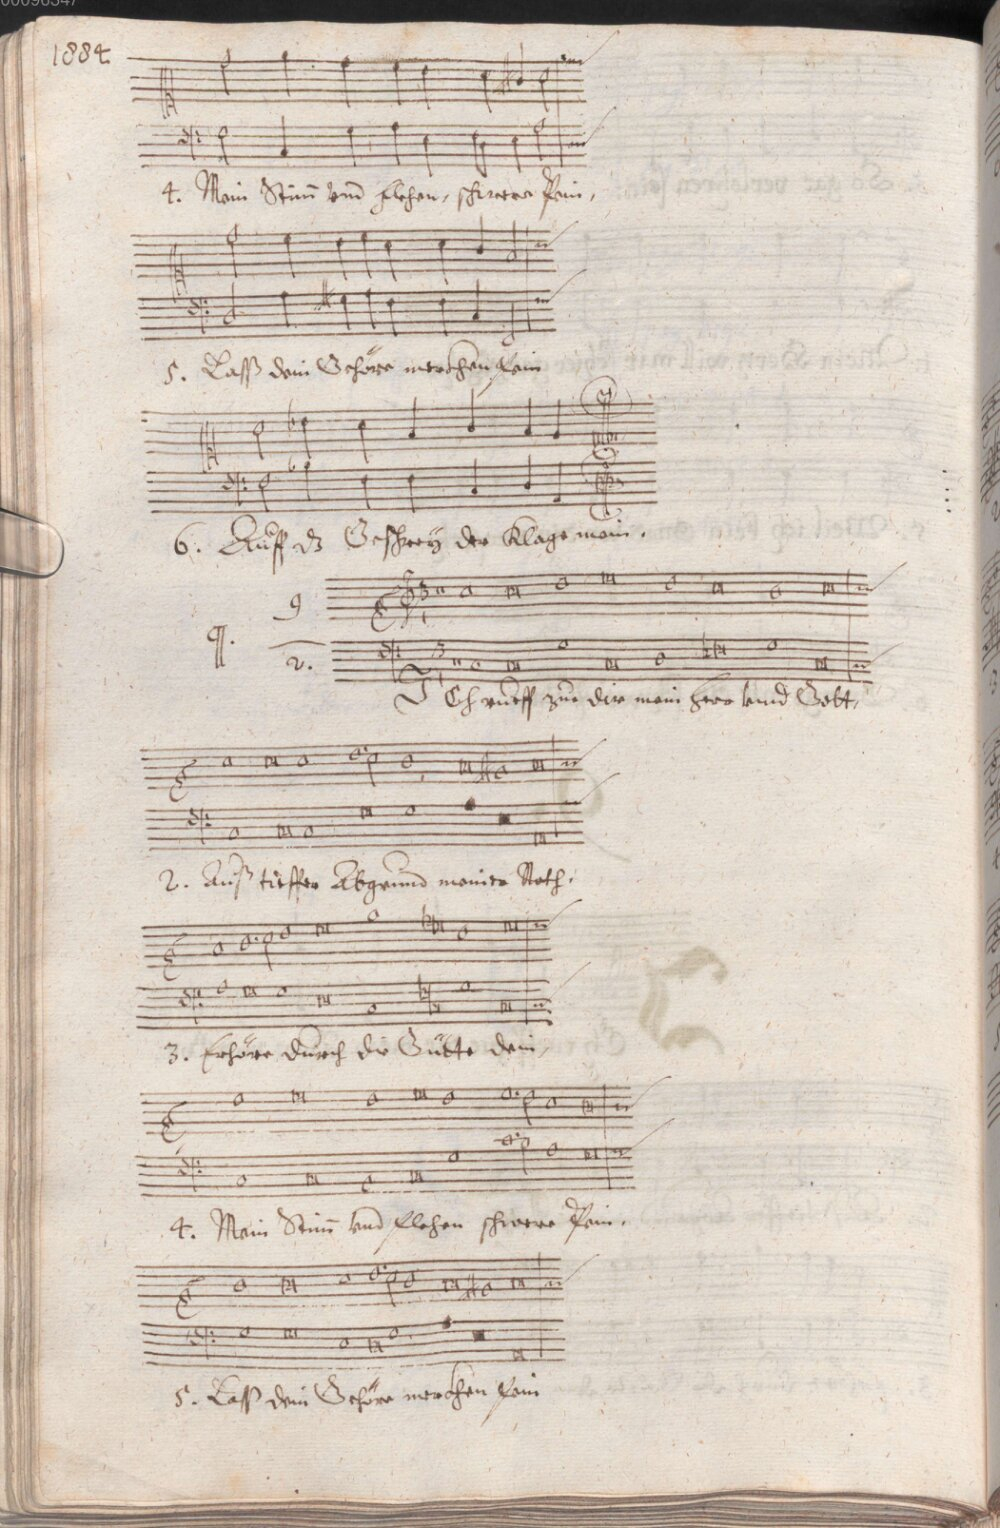 00096347
1884.
4. Mein Stim̄ vnd flehen, schwere Pein,
5. Lasß dein Gehöre merckhen sein
6. Auff dz Geschreÿ der Klage mein.
9
¶.
2.
ICh rueff zue dir mein herr vnnd Gott,
2. Auß tieffer Abgrund meiner Noth.
3. Erhöre durch die Gütte dein,
4. Mein Stim̄ vnd flehen schwere Pein.
5. Lasß dein Gehöre merckhen sein